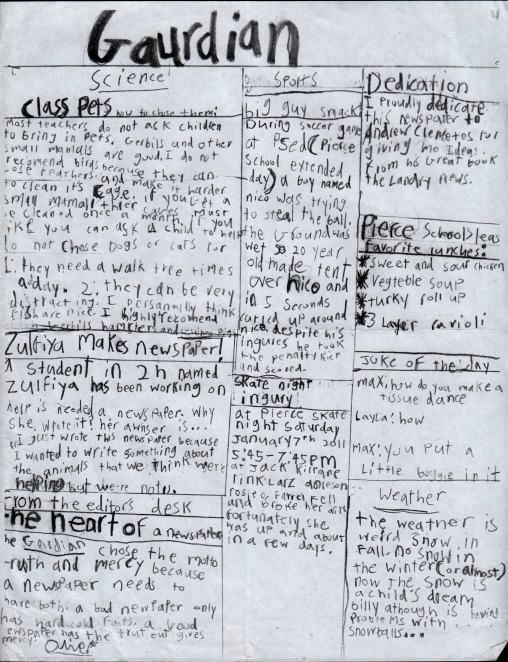 Gaurdian
Science
Class Pets how to chose them!
Most teachers do not ask children
to bring in pets. Gerbils and other
small mamals are good. I do not
recomend birds because they can
to clean it's cage. if you get a
i. they need a walk tree times
a day. 2. they can be very
distracting. I personally think
fish are nice. I highly recomend
Zulfiya Makes newspaper!
A student in 2h named
Zulfiya has been working on
help is needed a newspaper. Why
She, wrote it? her awnser is...
"I just wrote this newspaper because
I wanted to write something about
the animals that we think were
helping but we're not".
From the editors desk
The heart of a newspaper
he Gardian chose the motto
truth and mercy because
a newspaper needs to
have both. a bad newspaper only
has hard cold facts. a good
ewspaper has the trut but gives
mercy.
Sports
big guy smack
During soccer game
at PSED (Pierce
School extended
day) a boy named
nico was trying
to steal the ball.
the ground was
wet so 20 year
old made tent
over nico and
in 5 seconds
curled up around
nico. despite his
ingures he took
the penalty kick
and scored.
Skate night
ingury
at Pierce skate
night saturday
January 7th 2011
5:45-7:45pm
at Jack Kirrane
rink
fell
and broke her arm
fortunately she
was up and about
in a few days.
Dedication
I proudly dedicate
this newspaper to
Andrew Clemetes for
giving me Ideas.
From his Great book
the Landry News.
Pierce School
favorite lunches:
*Sweet and sour chicken
*Vegteble soup
*turky roll up
*3 Layer ravioli
Joke of the day
max, how do you make a
tissue dance
Layla: how
max: you put a
Little boggie in it
Weather
the weather is
weird snow in
fall. No snow in
the winter (or almost)
now the snow is
a child's dream
billy athough is having
problems with
snowballs...